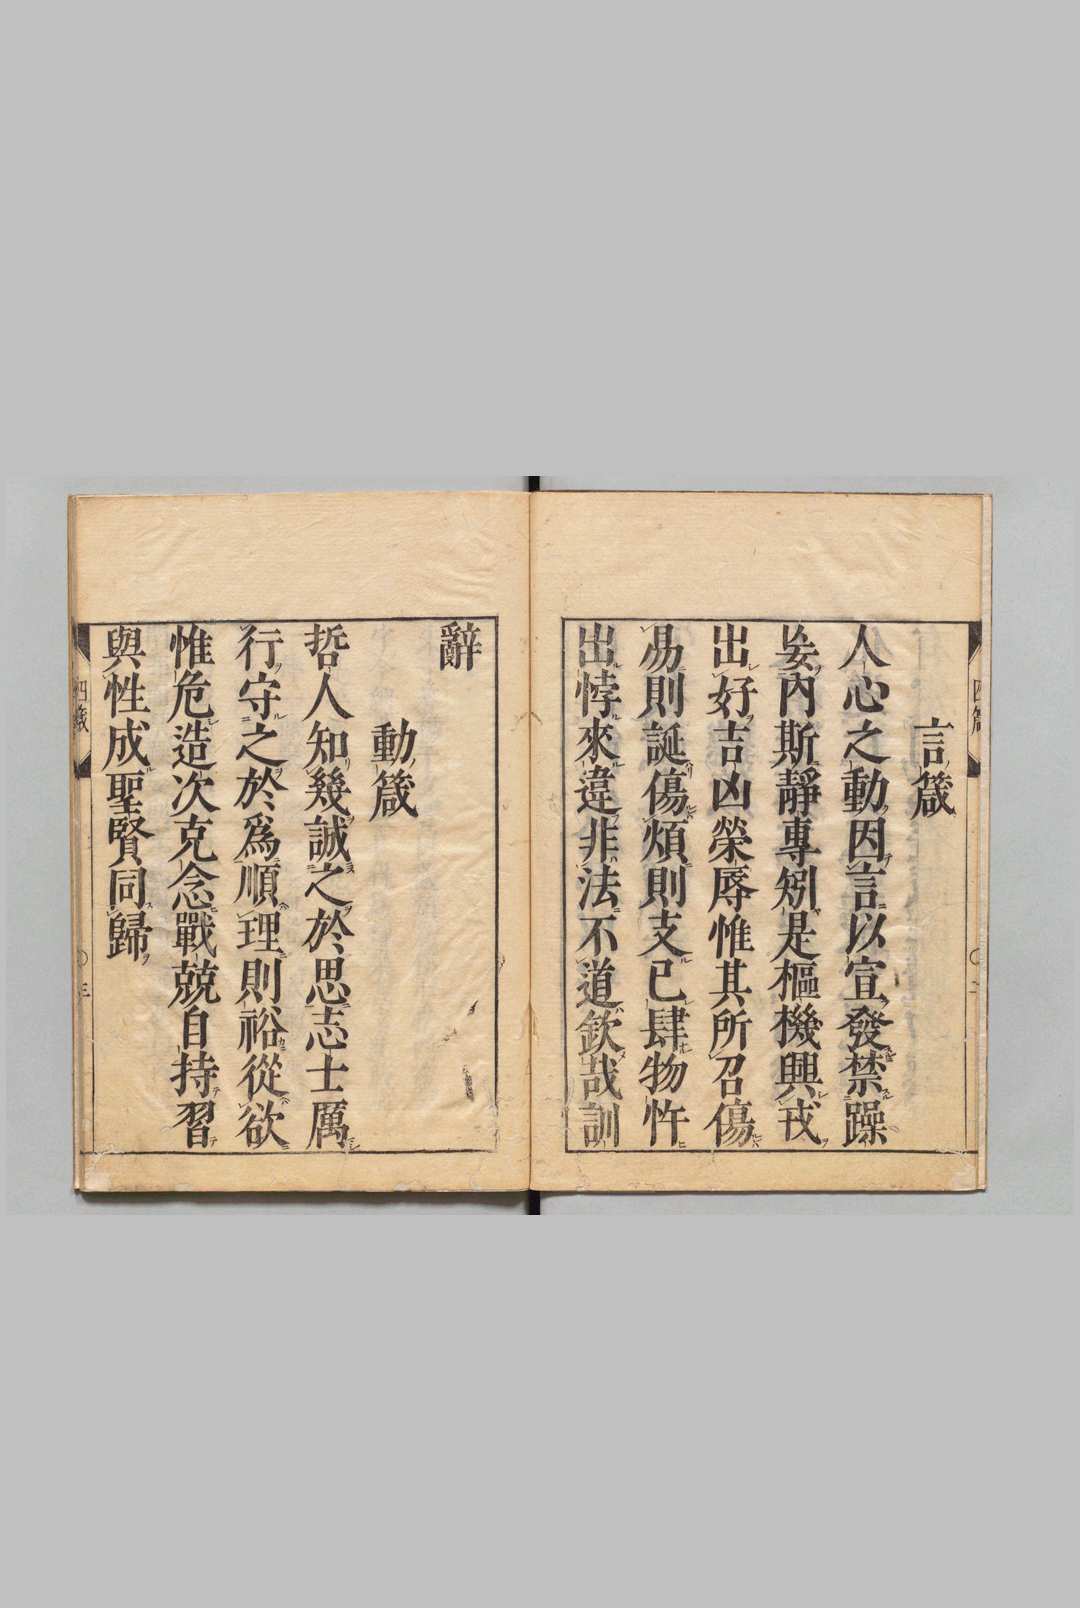 言箴
人心之動因言以宣發禁躁
妄內斯靜專矧是樞機興戎
出好吉凶榮辱惟其所召傷
易則誕傷煩則支己肆物忤
出悖來違非法不道欽哉訓
辭
動箴
哲人知幾誠之於思志士厲
行守之於爲順理則裕從欲
惟危造次克念戰兢自持習
與性成聖賢同歸
四箴
三